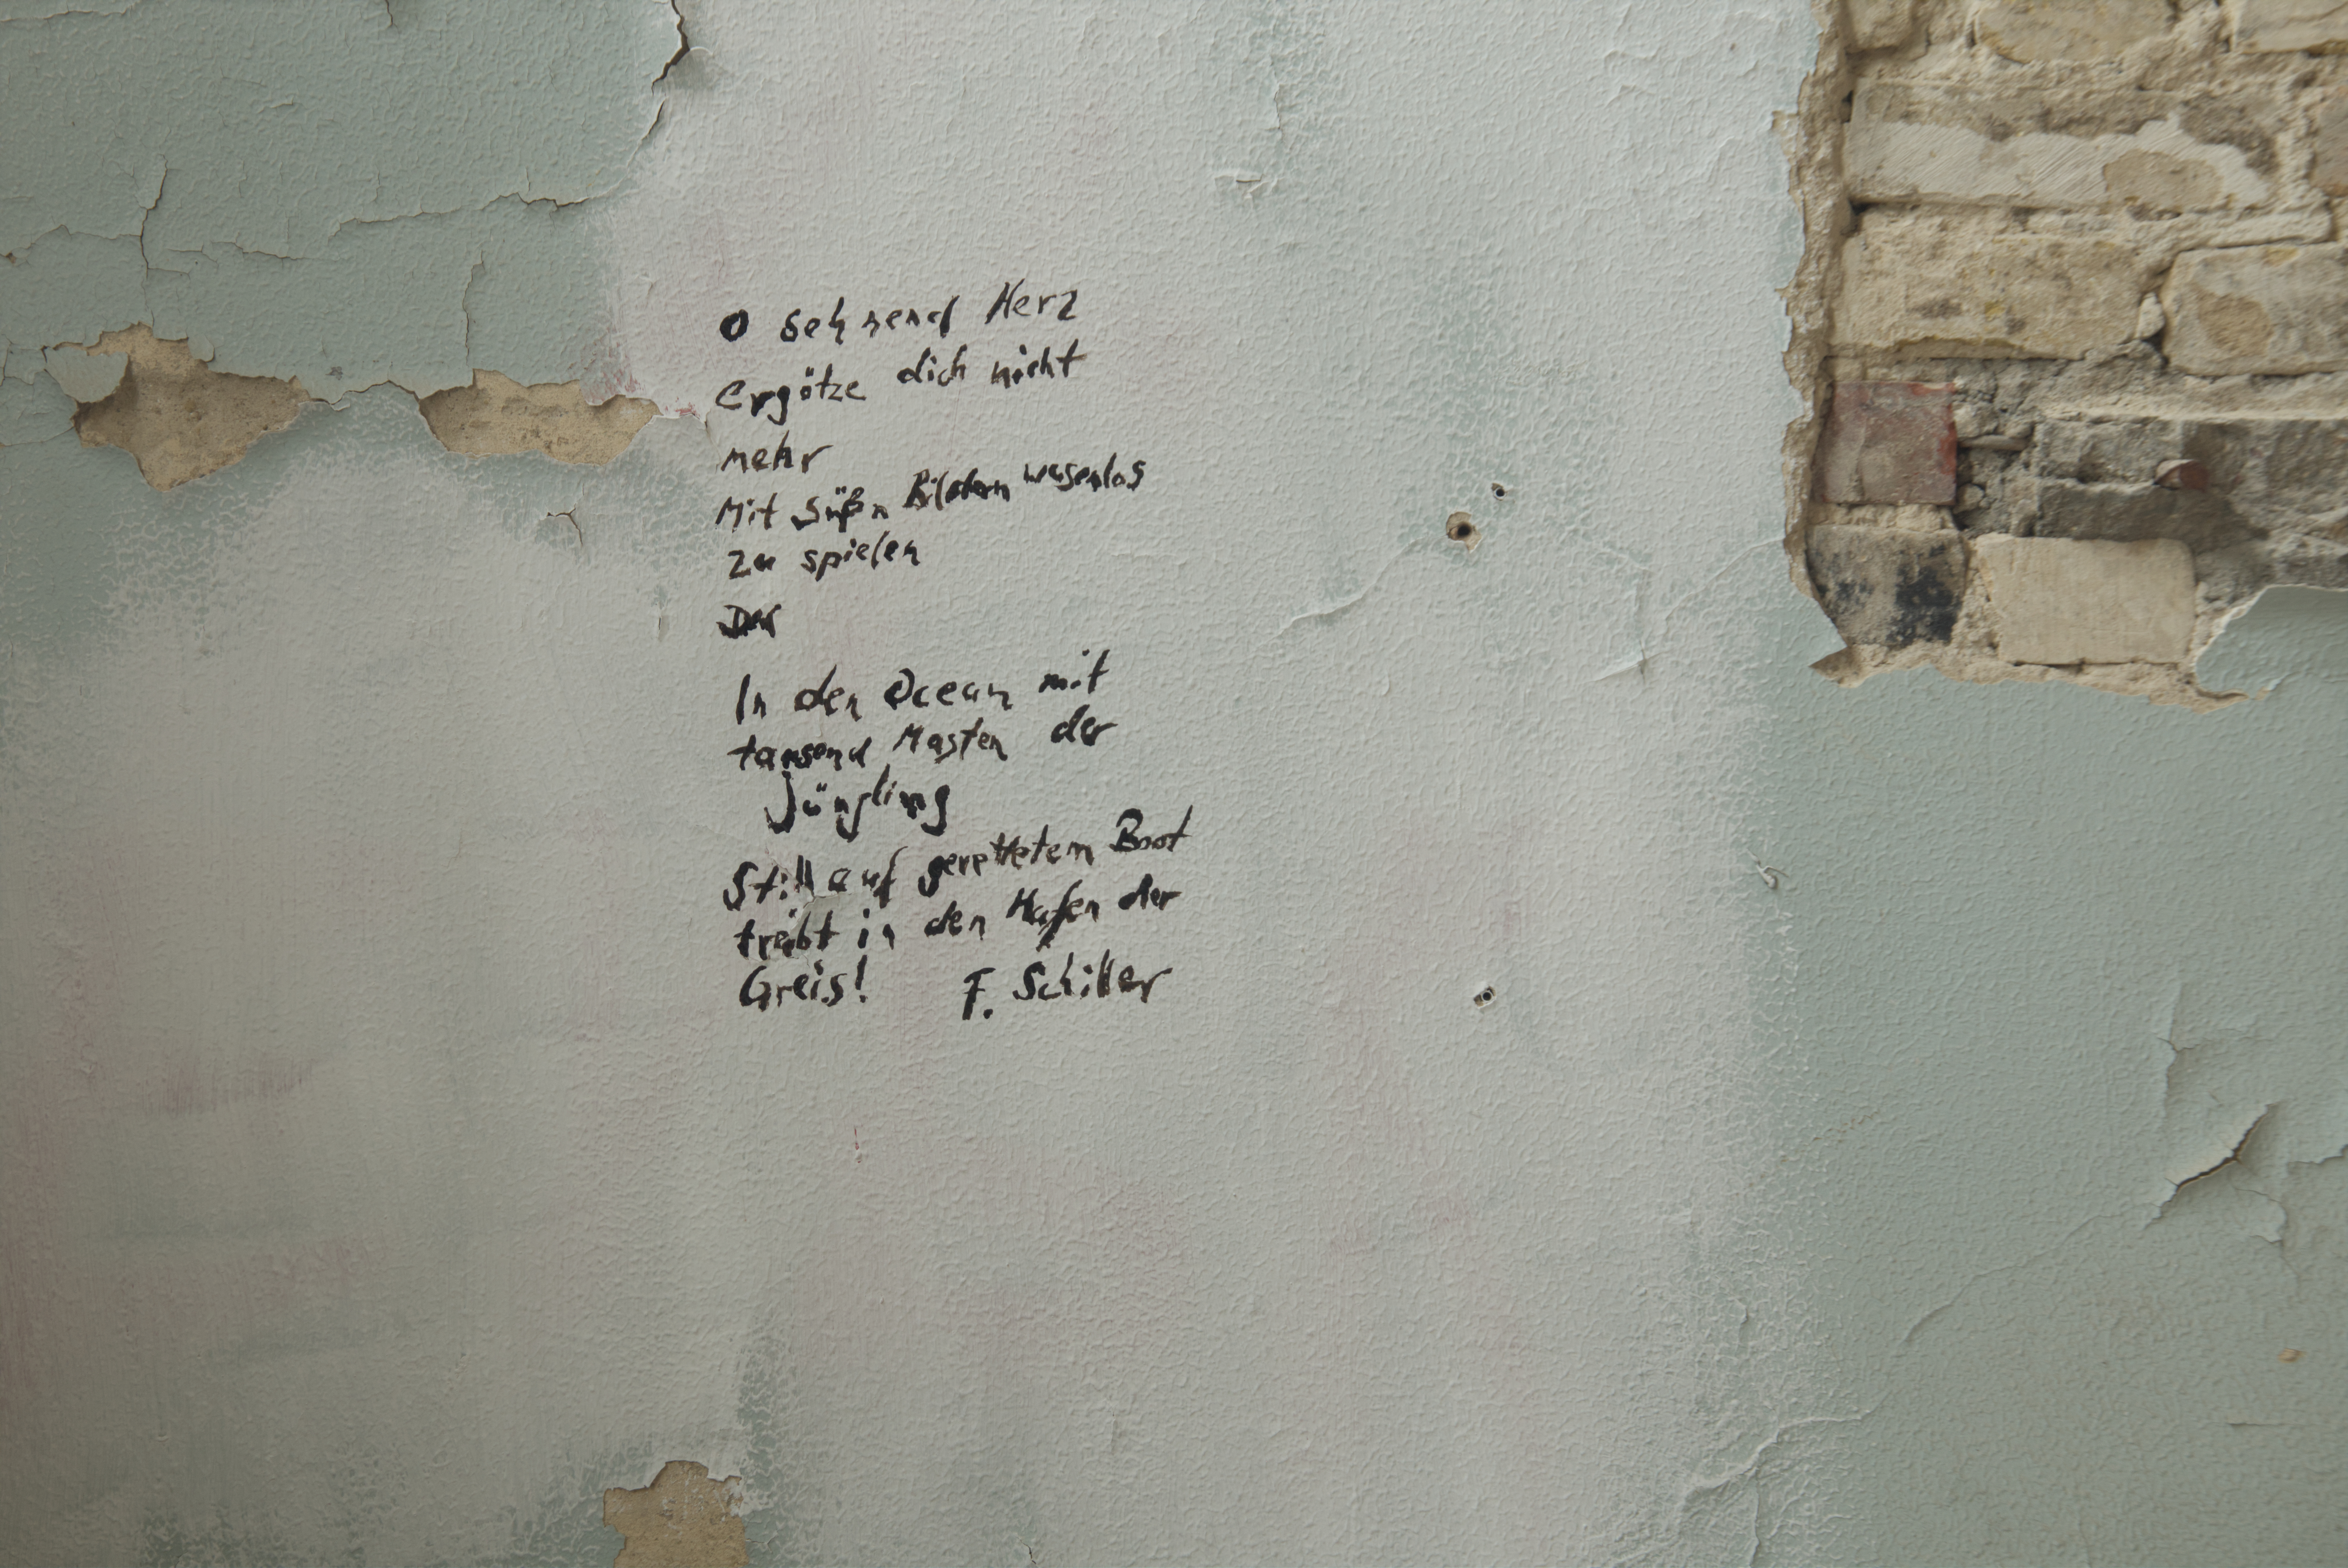 O sehnend Herz
ergötze dich nicht
mehr
Mit süßn Bildern wesenlos
zu spielen
Der
In den Ocean mit
tausend Masten der
Jüngling
Still auf gerettetem Boot
treibt in den Hafen der
Greis! F. Schiller